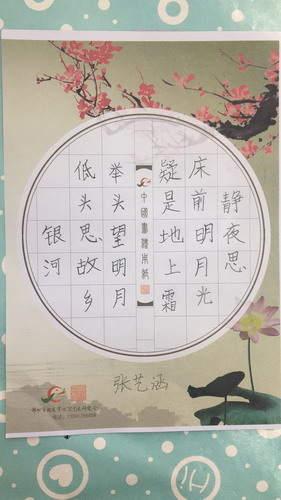 静夜思
床前明月光
疑是地上霜
中國書譜用紙
举头望明月
低头思故乡
银河
张艺涵
Hi